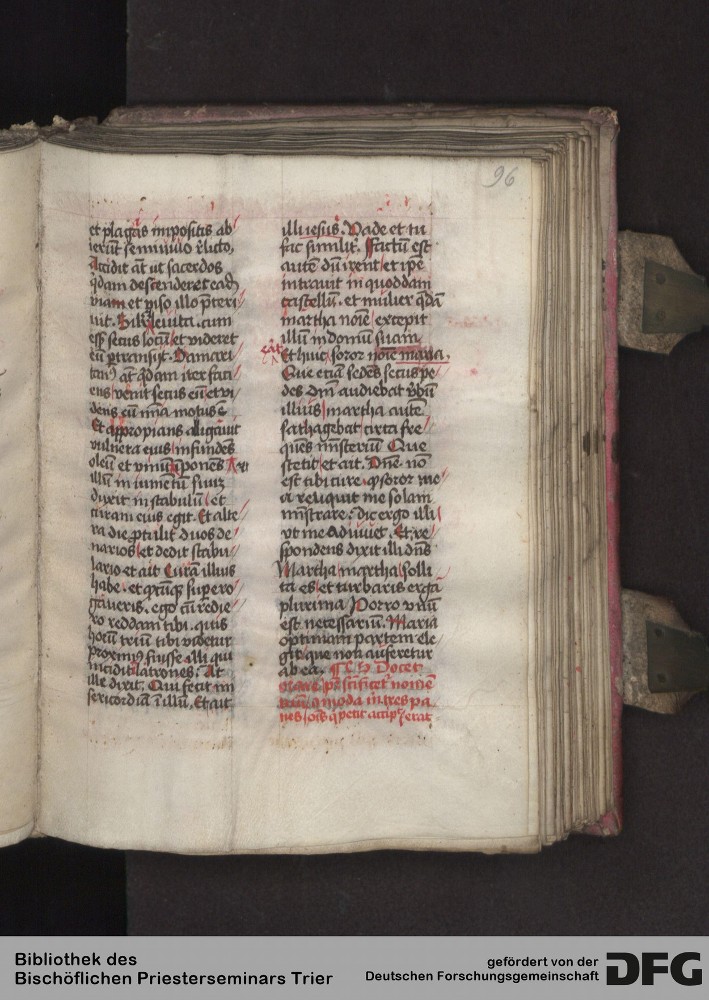 96
et plagis impositis ab
ierūt semiuiuo r̄licto,
Accidit āt ut sacerdos
q̄dam descenderet eadē
viam et viso illo p̄teri
uit. Sil̄r leuita. cum
eēt secus locū et videret
eū ꝑtransijt. Samari
tan᷒ āt q̄dam iter faci
ens venit secus eū et vi
dens eū mīa motus ē
Et appropians alligauit
vulnera eius infundēs
oleū et vinū īponēs
illū in iumētū suuȝ
duxit in stabulū et
curam eius egit. Et alte
ra die ꝓtulit duos de
narios et dedit stabu
lario et ait Curā illius
habe. et qd̄cūqȝ supero
gaueris. ego cū redie
ro reddam tibi. quis
horū triū tibi videtur
proxim᷒ fuisse illi qui
incidit latrones. At
ille dixit. Qui fecit mi
sericordiā ī illū. Et ait
illi iesus. Vade et tu
fac similit̄. Factū est
autē dū irent et ip̄e
intrauit in quoddam
castellū. et mulier q̄dā
martha noīe excepit
illū in domū suam
Et huic soror noīe maria.
Que etiā sedēs secus pe
des dn̄i audiebat v̄bū
illius martha autē
sathagebat circa fre
quēs mīsteriū Que
stetit et ait. Dn̄e nō
est tibi cure ꝙ soror me
a reliquit me solam
mīstrare. dic ergo illi
vt me adiuuet. Et re
spondens dixit illi dn̄s
Martha martha solli
ta es et turbaris erga
plurima Porro vnū
est necessariū. Maria
optimam partem ele
git que non auferetur
ab ea. Docet
orare pr̄ sc̄ificet᷑ nomē
tuū. comoda m̄ tres pa
nes ois q̄ petit accip᷑ erat
Bibliothek des
Bischöflichen Priesterseminars Trier
gefördert von der
Deutschen Forschungsgemeinschaft
DFG